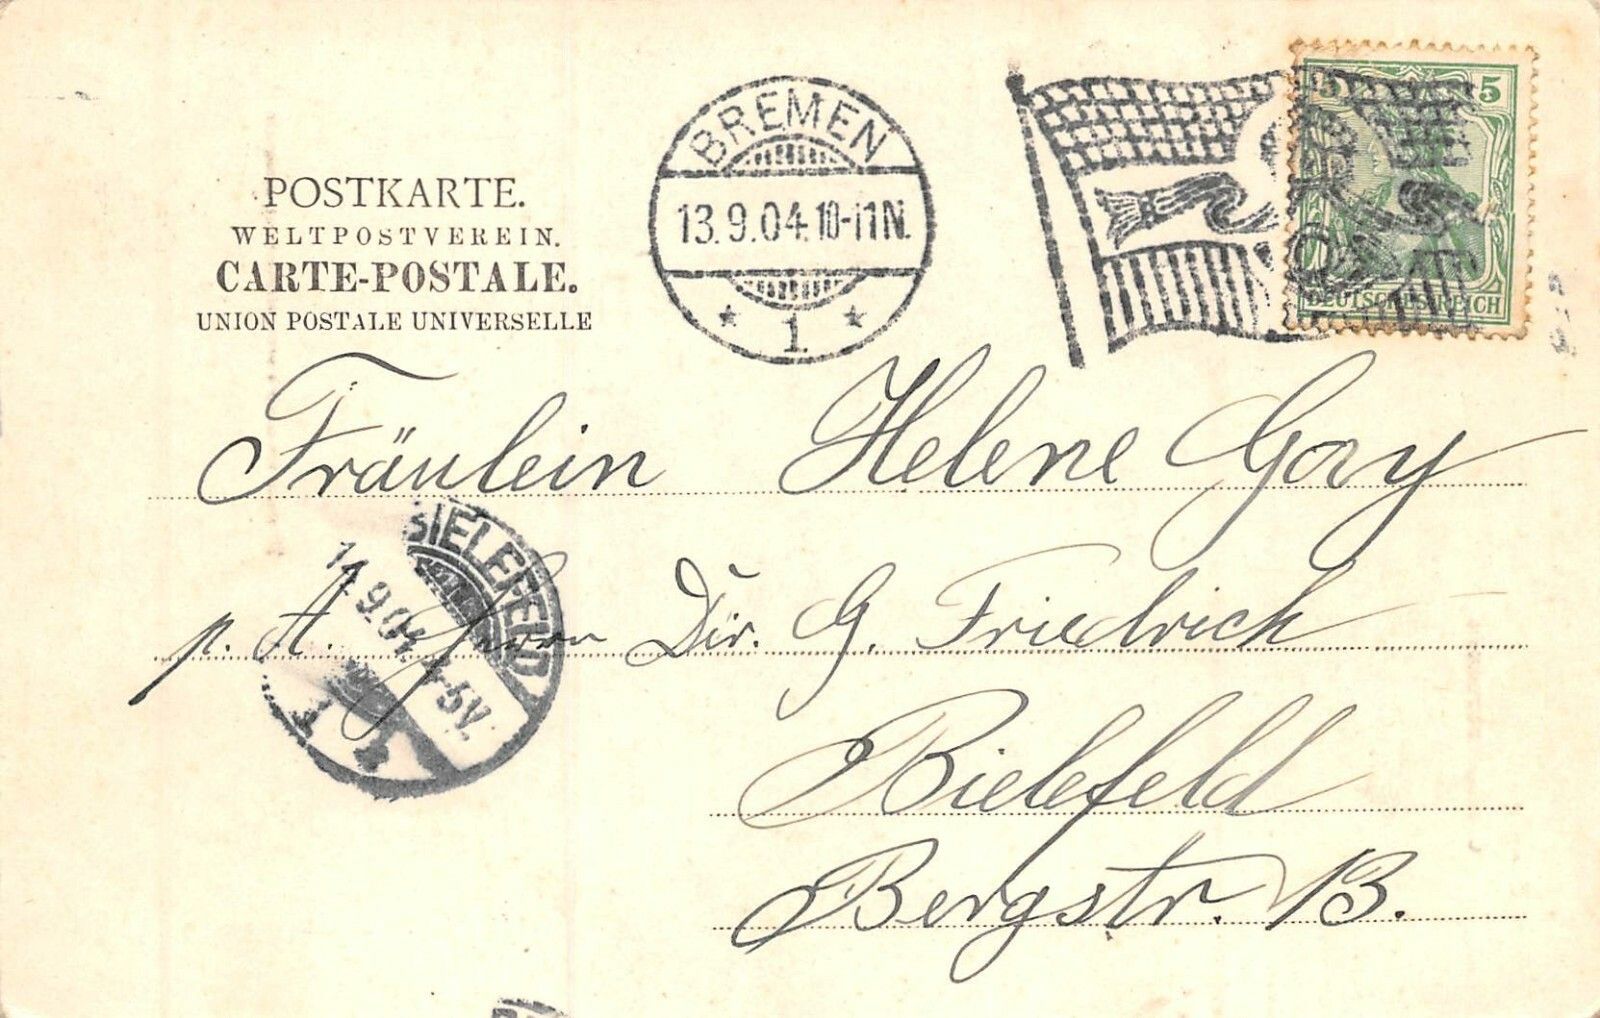 POSTKARTE.
WELTPOSTVEREIN.
CARTE-POSTALE.
UNION POSTALE UNIVERSELLE
BREMEN
13.9.04. 10-11N.
* 1. *
5 5
DEUTSCHES REICH
Fräulein Helene Gay
p. A. Herrn Dir. G. Friedrich
Bielefeld
Bergstr. 13.
BIELEFELD
14.9.04. 4-5V.
* 1